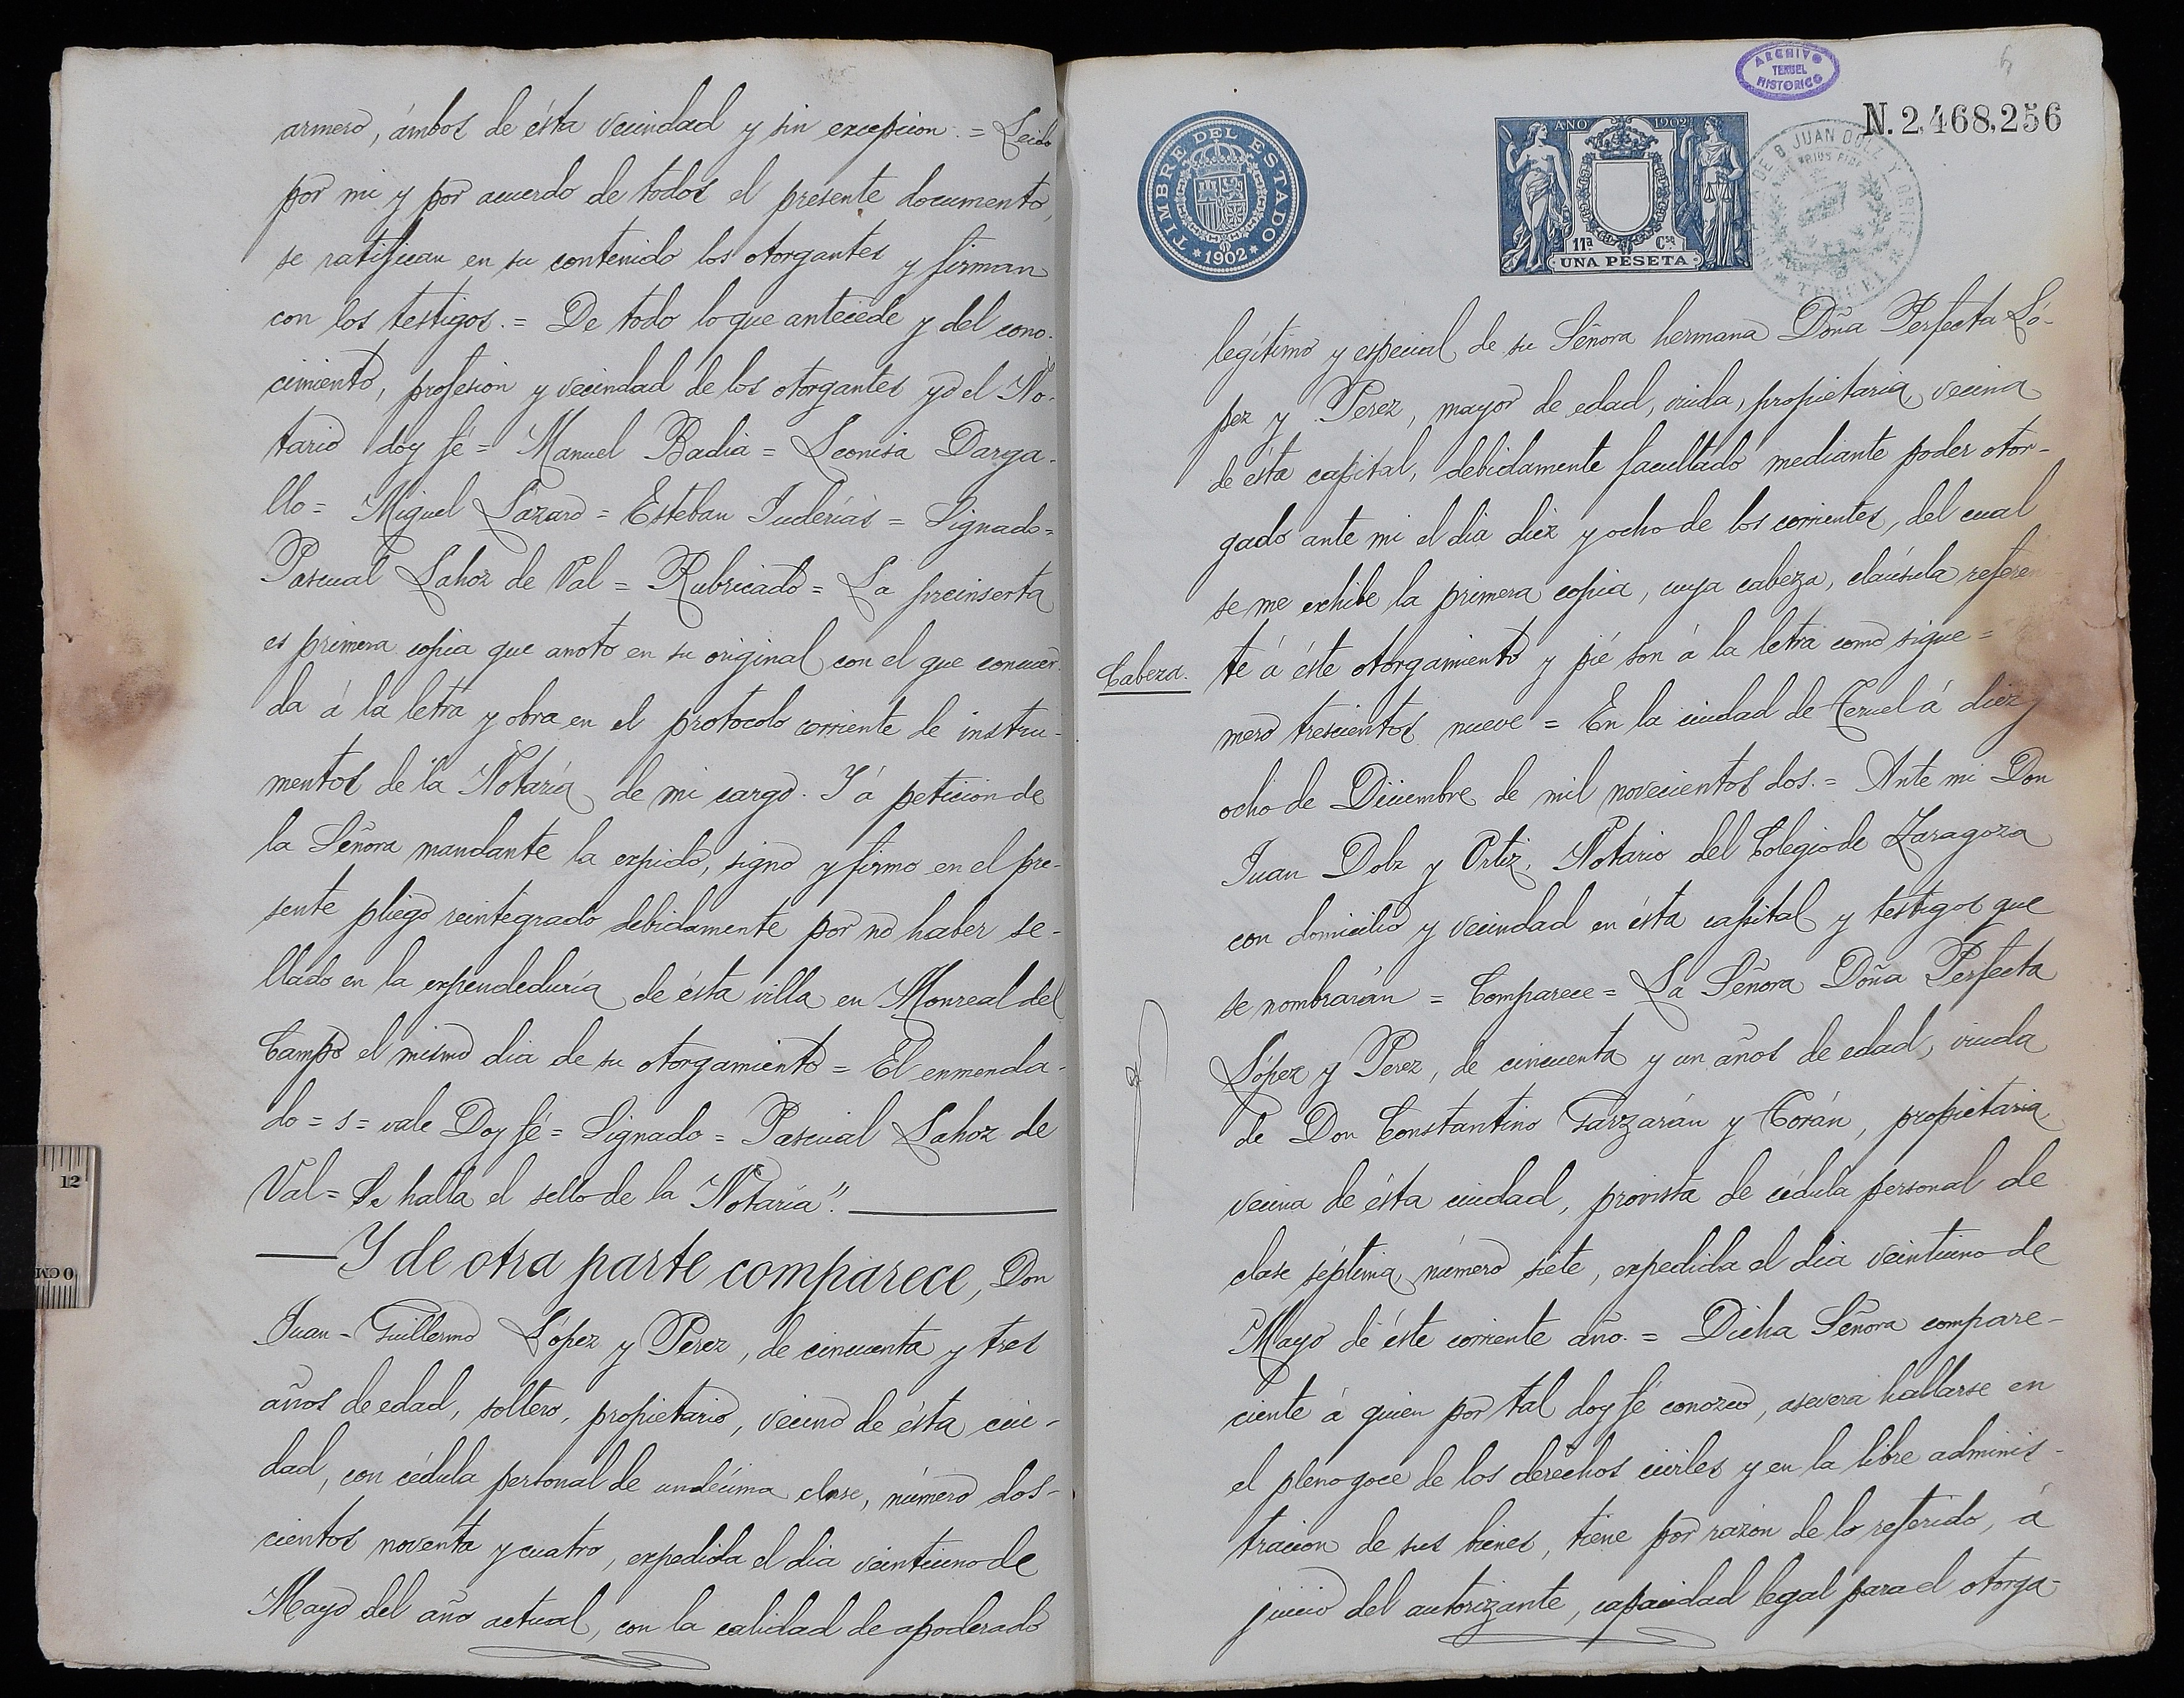 armero, ámbos de ésta vecindad y sin excepcion. = Leido
por mi y por acuerdo de todos el presente documento,
se ratifican en su contenido los otorgantes y firman
con los testigos. = De todo lo que antecede y del cono-
cimiento, profesion y vecindad de los otorgantes yo el No-
tario doy fé = Manuel Badia = Leonisa Darga-
llo = Miguel Lázaro = Esteban Juderías = Signado =
Pascual Lahoz de Val = Rubricado = La preinserta
es primera copia que anoto en su original con el que concuer-
da á la letra y obra en el protocolo corriente de instru-
mentos de la Notaría de mi cargo. Y á peticion de
la Señora mandante la expido, signo y firmo en el pre-
sente pliego reintegrado debidamente por no haber se-
llado en la expendeduría de ésta villa en Monreal del
Campo el mismo dia de su otorgamiento = El enmenda-
do = s = vale Doy fé = Signado = Pascual Lahoz de
Val = Se halla el sello de la Notaría".
Y de otra parte comparece, Don
Juan-Guillermo López y Perez, de cincuenta y tres
años de edad, soltero, propietario, vecino de ésta ciu-
dad, con cédula personal de undécima clase, número dos-
cientos noventa y cuatro, expedida el dia veintiuno de
Mayo del año actual, con la calidad de apoderado
ARCHIVO
HISTORICO
TERUEL
N. 2,468,256
TIMBRE DEL ESTADO
1902
AÑO 1902
11ª Cse
UNA PESETA
JUAN DOLZ Y ORTIZ
TERUEL
legítimo y especial de su Señora hermana Doña Perfecta Ló-
pez y Perez, mayor de edad, viuda, propietaria, vecina
de ésta capital, debidamente facultado mediante poder otor-
gado ante mi el dia diez y ocho de los corrientes, del cual
se me exhibe la primera copia, cuya cabeza, claúsula referen-
Cabeza. te á éste otorgamiento y pié son á la letra como sigue =
mero trescientos nueve = En la ciudad de Teruel á diez y
ocho de Diciembre de mil novecientos dos. = Ante mi Don
Juan Dolz y Ortiz, Notario del Colegio de Zaragoza
con domicilio y vecindad en ésta capital y testigos que
se nombrarán = Comparece = La Señora Doña Perfecta
López y Perez, de cincuenta y un años de edad, viuda
de Don Constantino Garzarán y Torán, propietaria
vecina de ésta ciudad, provista de cédula personal de
clase séptima, número siete, expedida el dia veintiuno de
Mayo de éste corriente año. = Dicha Señora compare-
ciente á quien por tal doy fé conozco, asevera hallarse en
el pleno goce de los derechos civiles y en la libre adminis-
tracion de sus bienes, tiene por razón de lo referido, á
juicio del autorizante, capacidad legal para el otorga-
12
0CM